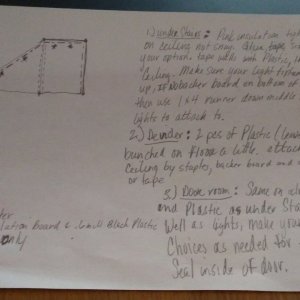 1.) under Stairs: Pink insulation tigh
on ceiling not snug. Glue, tape, Sc
your option. tape works with Plastic,
Ceiling. Make sure your light
up, If No backer board on bottom of
then use 1x4 runner down middle
lights to attach to.
2.) Devider: 2 pes of Plastic
bunched on floor a little. attach
Ceiling by staples, backer board and
or tape
3.) Door room: Same on
and Plastic as under Sta
Well as lights, make your
Choices as needed for
Seal inside of door.
lation Board & 6 mill Black Plastic
only